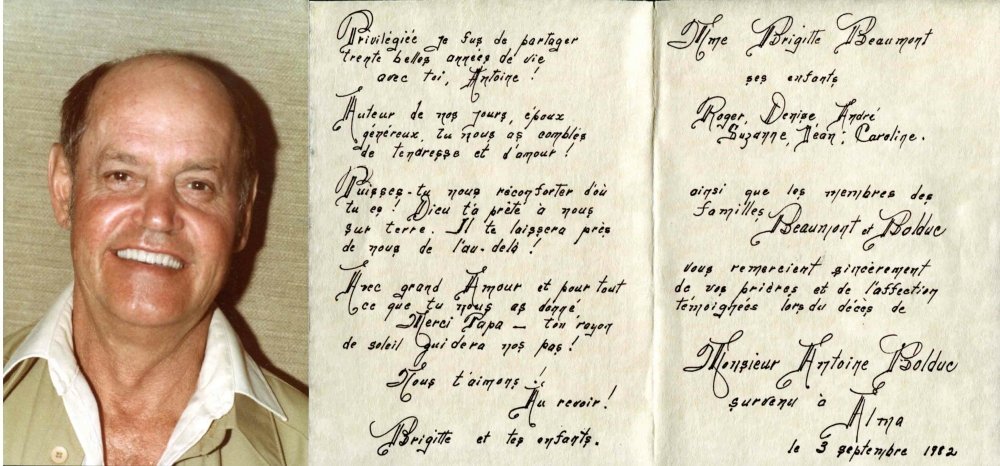 Privilégiée je fus de partager
trente belles années de vie
avec toi, Antoine !
Auteur de nos jours, époux
généreux, tu nous as comblés
de tendresse et d'amour !
Puisses-tu nous réconforter d'où
tu es ! Dieu t'a prêté à nous
sur terre. Il te laissera près
de nous de l'au-delà !
Avec grand Amour et pour tout
ce que tu nous as donné
Merci Papa — ton rayon
de soleil guidera nos pas !
Nous t'aimons !
Au revoir !
Brigitte et tes enfants.
Mme Brigitte Beaumont
ses enfants
Roger, Denise, André
Suzanne, Jean, Caroline.
ainsi que les membres des
familles
Beaumont et Bolduc
vous remercient sincèrement
de vos prières et de l'affection
témoignées lors du décès de
Monsieur Antoine Bolduc
survenu à
Alma
le 3 septembre 1982